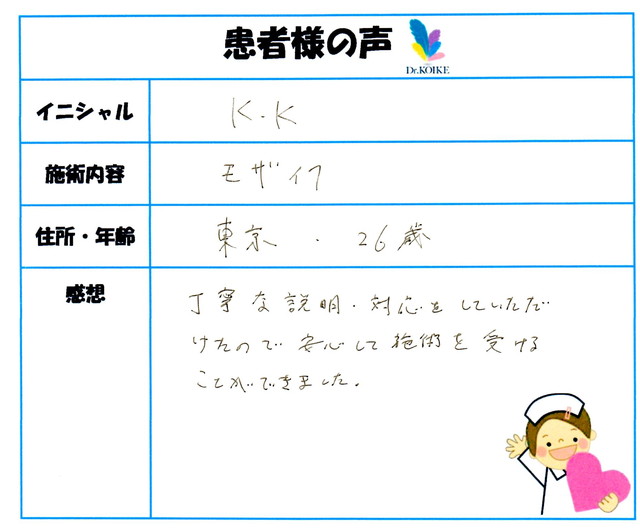 患者様の声
Dr.KOIKE
イニシャル K.K
施術内容 モザイク
住所・年齢 東京 . 26歳
感想
丁寧な説明・対応をしていただ
けたので安心して施術を受ける
ことができました。